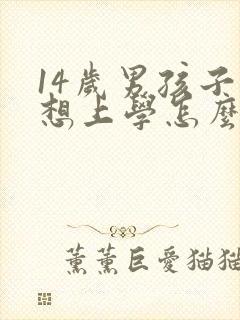 14歲男孩子
想上學怎麼
薰薰巨愛猫猫